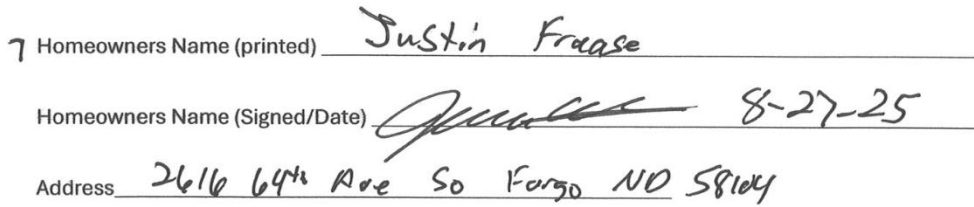 7 Homeowners Name (printed) Justin Fraase
Homeowners Name (Signed/Date) 8-27-25
Address 2616 64th Ave So Fargo ND 58104